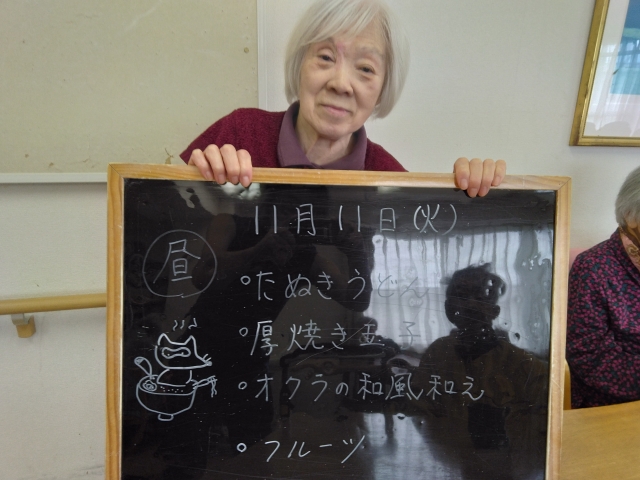 11月11日(火)
昼
○たぬきうどん
○厚焼き玉子
○オクラの和風和え
○フルーツ